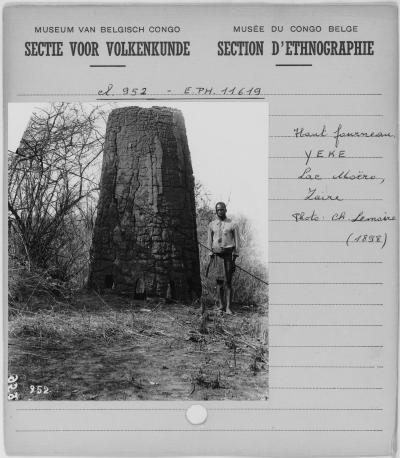 MUSEUM VAN BELGISCH CONGO
SECTIE VOOR VOLKENKUNDE
MUSÉE DU CONGO BELGE
SECTION D'ETHNOGRAPHIE
cl. 952 - E.PH. 11619
Haut fourneau.
YEKE
Lac Moëro,
Zaïre
Photo: Ch. Lemaire
(1898)
952
952